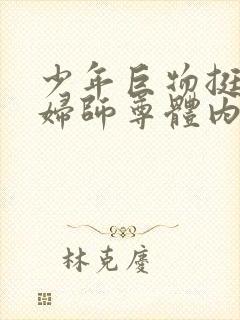 少年巨物挺
婦師尊體內
林克慶